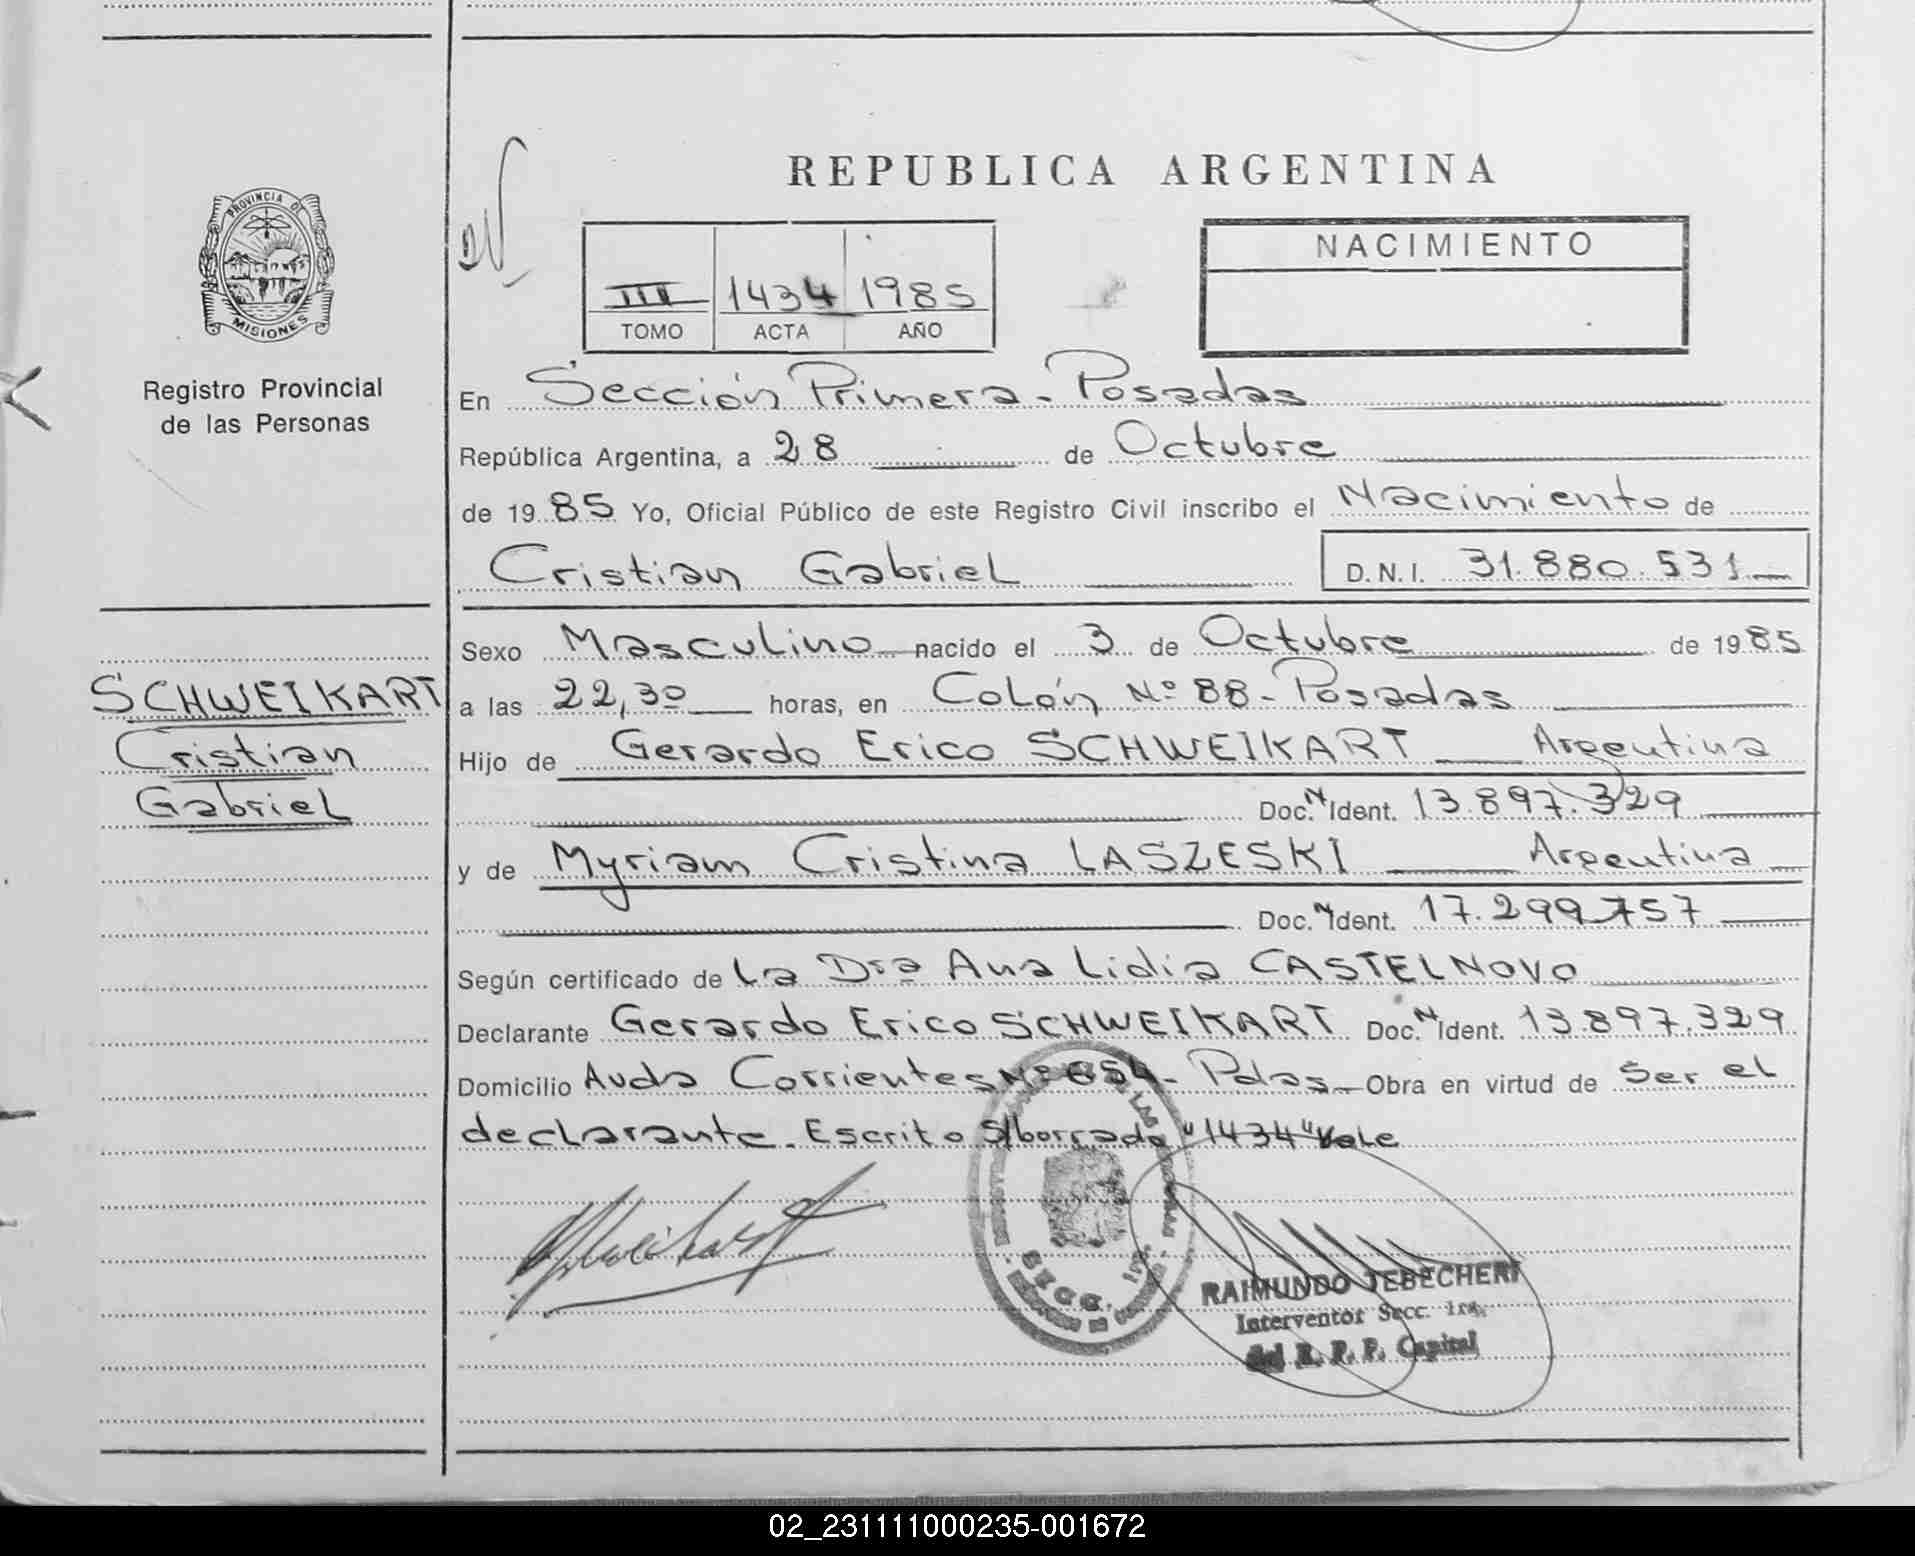 REPUBLICA ARGENTINA
PROVINCIA DE
MISIONES
Registro Provincial
de las Personas
III 1434 1985
TOMO ACTA AÑO
NACIMIENTO
En Sección Primera - Posadas
República Argentina, a 28 de Octubre
de 19 85 Yo, Oficial Público de este Registro Civil inscribo el Nacimiento de
Cristian Gabriel D.N.I. 31.880.531
SCHWEIKART
Cristian
Gabriel
Sexo Masculino nacido el 3 de Octubre de 19 85
a las 22,30 horas, en Colón Nº 88 - Posadas
Hijo de Gerardo Erico SCHWEIKART Argentina
Doc. N Ident. 13.897.329
y de Myriam Cristina LASZESKI Argentina
Doc. N Ident. 17.299.757
Según certificado de La Dra Ana Lidia CASTELNOVO
Declarante Gerardo Erico SCHWEIKART Doc. N Ident. 13.897.329
Domicilio Avda Corrientes Nº 654 - Pdas Obra en virtud de Ser el
declarante. Escrito S/borrado "1434" Vale
SECC. 1ra.
RAIMUNDO JEBECHERI
Interventor Secc. 1ra.
del R. P. P. Capital
02_231111000235-001672